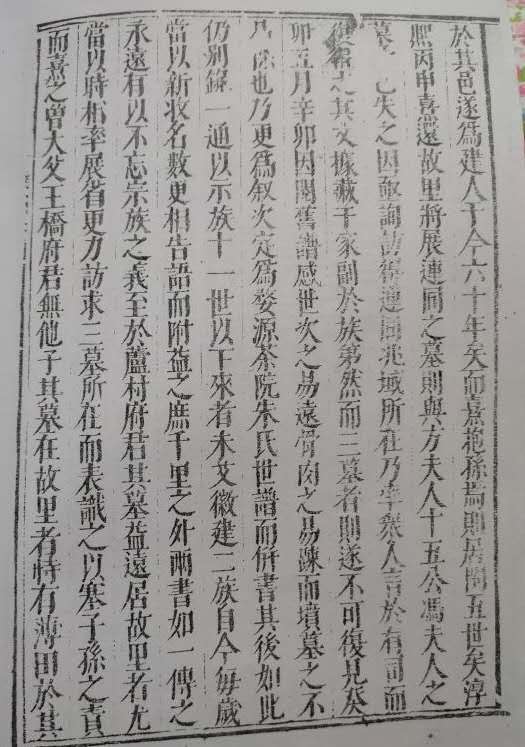 於其邑遂爲建人于今六十年矣而熹抱孫焉則居閩五世矣淳
熙丙申喜還故里將展連同之墓則與方夫人十五公馮夫人之
墓已失之因亟詢訪得連同兆域所在乃率衆人言於有司而
復之其文據藏于家副於族弟然而三墓者則遂不可復見癸
卯五月辛卯因閱舊譜感世次之易遠骨肉之易疎而墳墓之不
保也乃更爲叙次定爲婺源茶院朱氏世譜而併書其後如此
仍别錄一通以示族十一世以下來者未艾徽建二族自今每歲
當以新收名數更相告語而附益之庶千里之外兩書如一傳之
永遠有以不忘宗族之義至於蘆村府君其墓益遠居故里者尤
當以時相率展省更力訪求三墓所在而表識之以塞子孫之責
而熹之曾大父王橋府君無他子其墓在故里者特有薄田於其